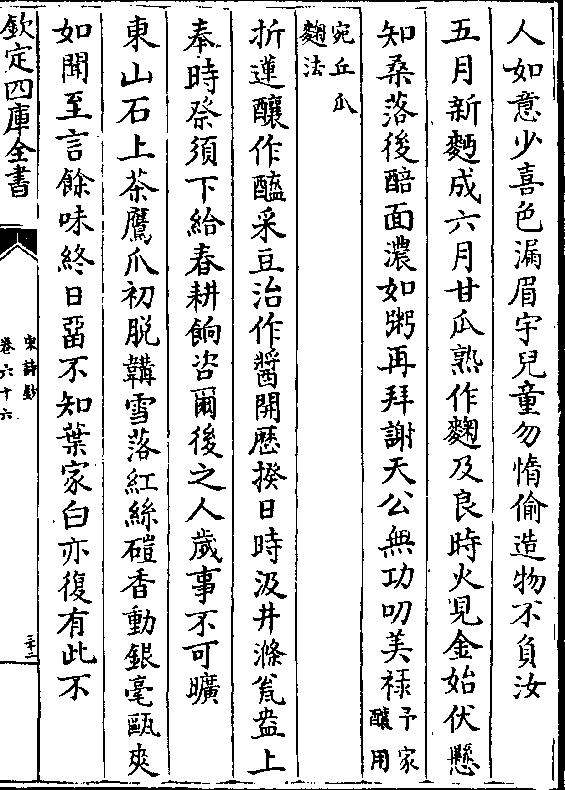 人如意少喜色漏眉宇兒童勿惰偷造物不負汝
五月新麪成六月甘瓜熟作麴及良時火見金始伏懸
知桑落後醅面濃如粥再拜謝天公無功叨美祿予家釀用
宛丘瓜麴法
折蓮釀作醢采豆治作醬開厯揆日時汲井滌瓮盎上
奉時祭須下給春耕餉咨爾後之人歲事不可曠
東山石上茶鷹爪初脱韝雪落紅絲磑香動銀毫甌爽
如聞至言餘味終日畱不知葉家白亦復有此不
欽定四庫全書
宋詩鈔
卷六十六
二十三